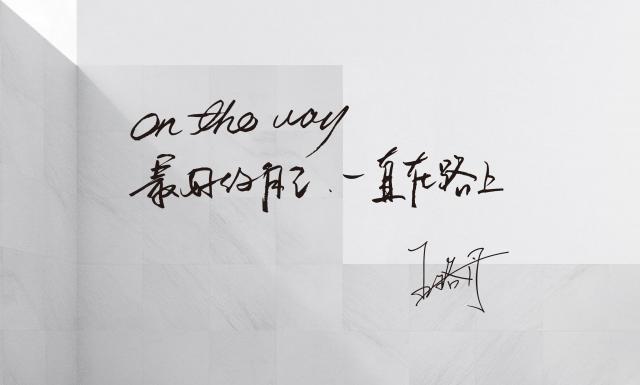 on the way
最好的自己，一直在路上
王珞丹